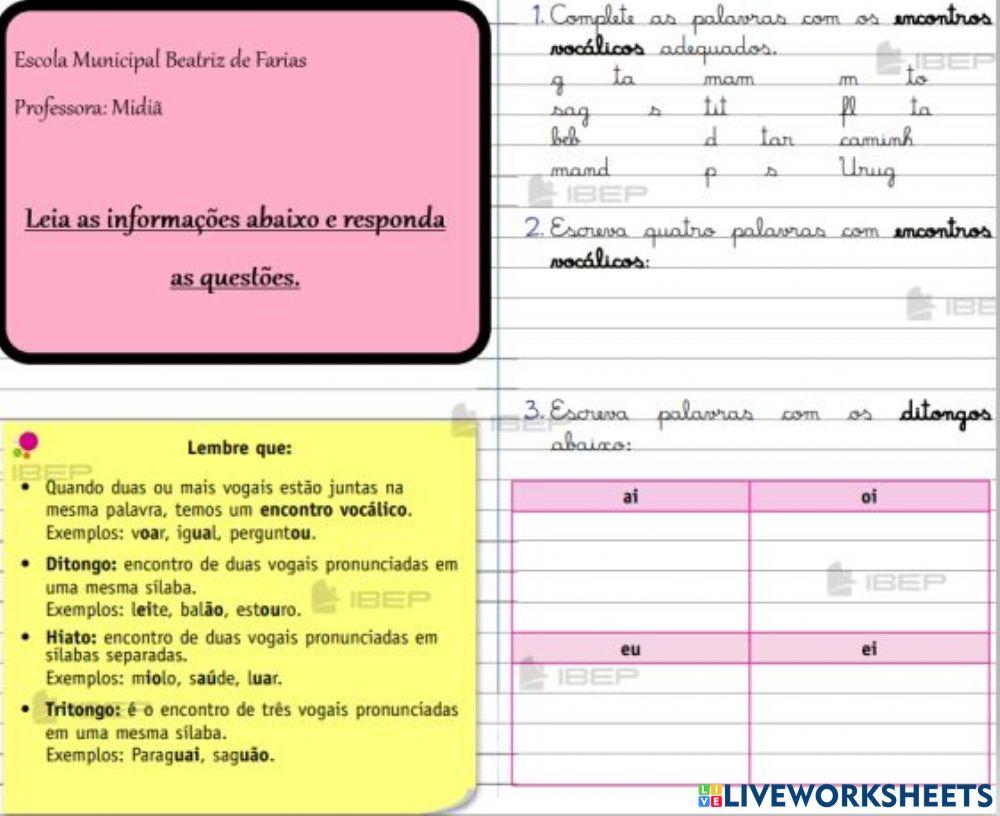 Escola Municipal Beatriz de Farias
Professora: Midiã
Leia as informações abaixo e responda
as questões.
IBEP
Lembre que:
• Quando duas ou mais vogais estão juntas na
mesma palavra, temos um encontro vocálico.
Exemplos: voar, igual, perguntou.
• Ditongo: encontro de duas vogais pronunciadas em
uma mesma sílaba.
Exemplos: leite, balão, estouro.
• Hiato: encontro de duas vogais pronunciadas em
sílabas separadas.
Exemplos: miolo, saúde, luar.
• Tritongo: é o encontro de três vogais pronunciadas
em uma mesma sílaba.
Exemplos: Paraguai, saguão.
IBEP
IBEP
1. Complete as palavras com os encontros
vocálicos adequados.
IBEP
g ta mam m to
sag s tit fl ta
beb d tar caminh
mand p s Urug
IBEP
2. Escreva quatro palavras com encontros
vocálicos:
IBE
3. Escreva palavras com os ditongos
abaixo:
ai oi
IBEP
eu ei
IBEP
LIVEWORKSHEETS